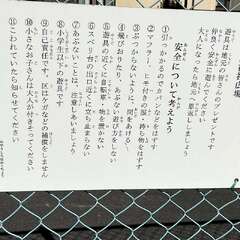 遊具は地域の皆さんのプレゼントです
安全について考えよう
①引っかかるのでカバンなどをはずす
②マフラー、ヒモ付きの服、持ち物をはずす
③ぶつからないように、間をあける
④飛びおりたり、あぶない遊び方をしない
⑤遊具の近くに自転車、物を置かない
⑥スベリ台の出口に近くに立ち止まらない
⑦あぶないことは、注意しあいましょう
⑧小学生以下の遊具です
⑨自己責任です、区はケガなどの補償をしません
⑩小さなお子さんは大人が付きそってください
⑪こわれていたら知らせてください